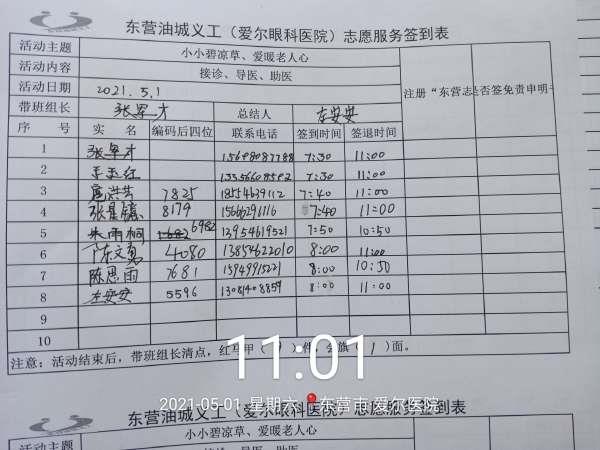 东营油城义工（爱尔眼科医院）志愿服务签到表
活动主题 小小碧凉草、爱暖老人心
活动内容 接诊、导医、助医
活动日期 2021.5.1 注册“东营志 是否签免责申明
带班组长 张军才 总结人 左安安
序 号 实 名 编码后四位 联系电话 签到时间 签退时间
1 张军才 7:30 11:00
2 王玉红 7:30 11:00
3 7825 18554639112 7:40 11:00
4 8179 15666291116 7:40 11:00
5 朱雨桐 6982 13954619521 7:50 10:50
6 陈文勇 4080 13854622010 8:00 11:00
7 陈思雨 7681 15949915221 8:00 10:50
8 左安安 5596 13081408859 8:00 11:00
9
10
注意：活动结束后，带班组长清点，红马甲（ ）件，会旗 1 ）面。
11:01
2021-05-01 星期六 东营市·爱尔眼科医院
东营油城义工（爱尔眼科医院）志愿服务签到表
活动主题 小小碧凉草、爱暖老人心
接诊、导医、助医